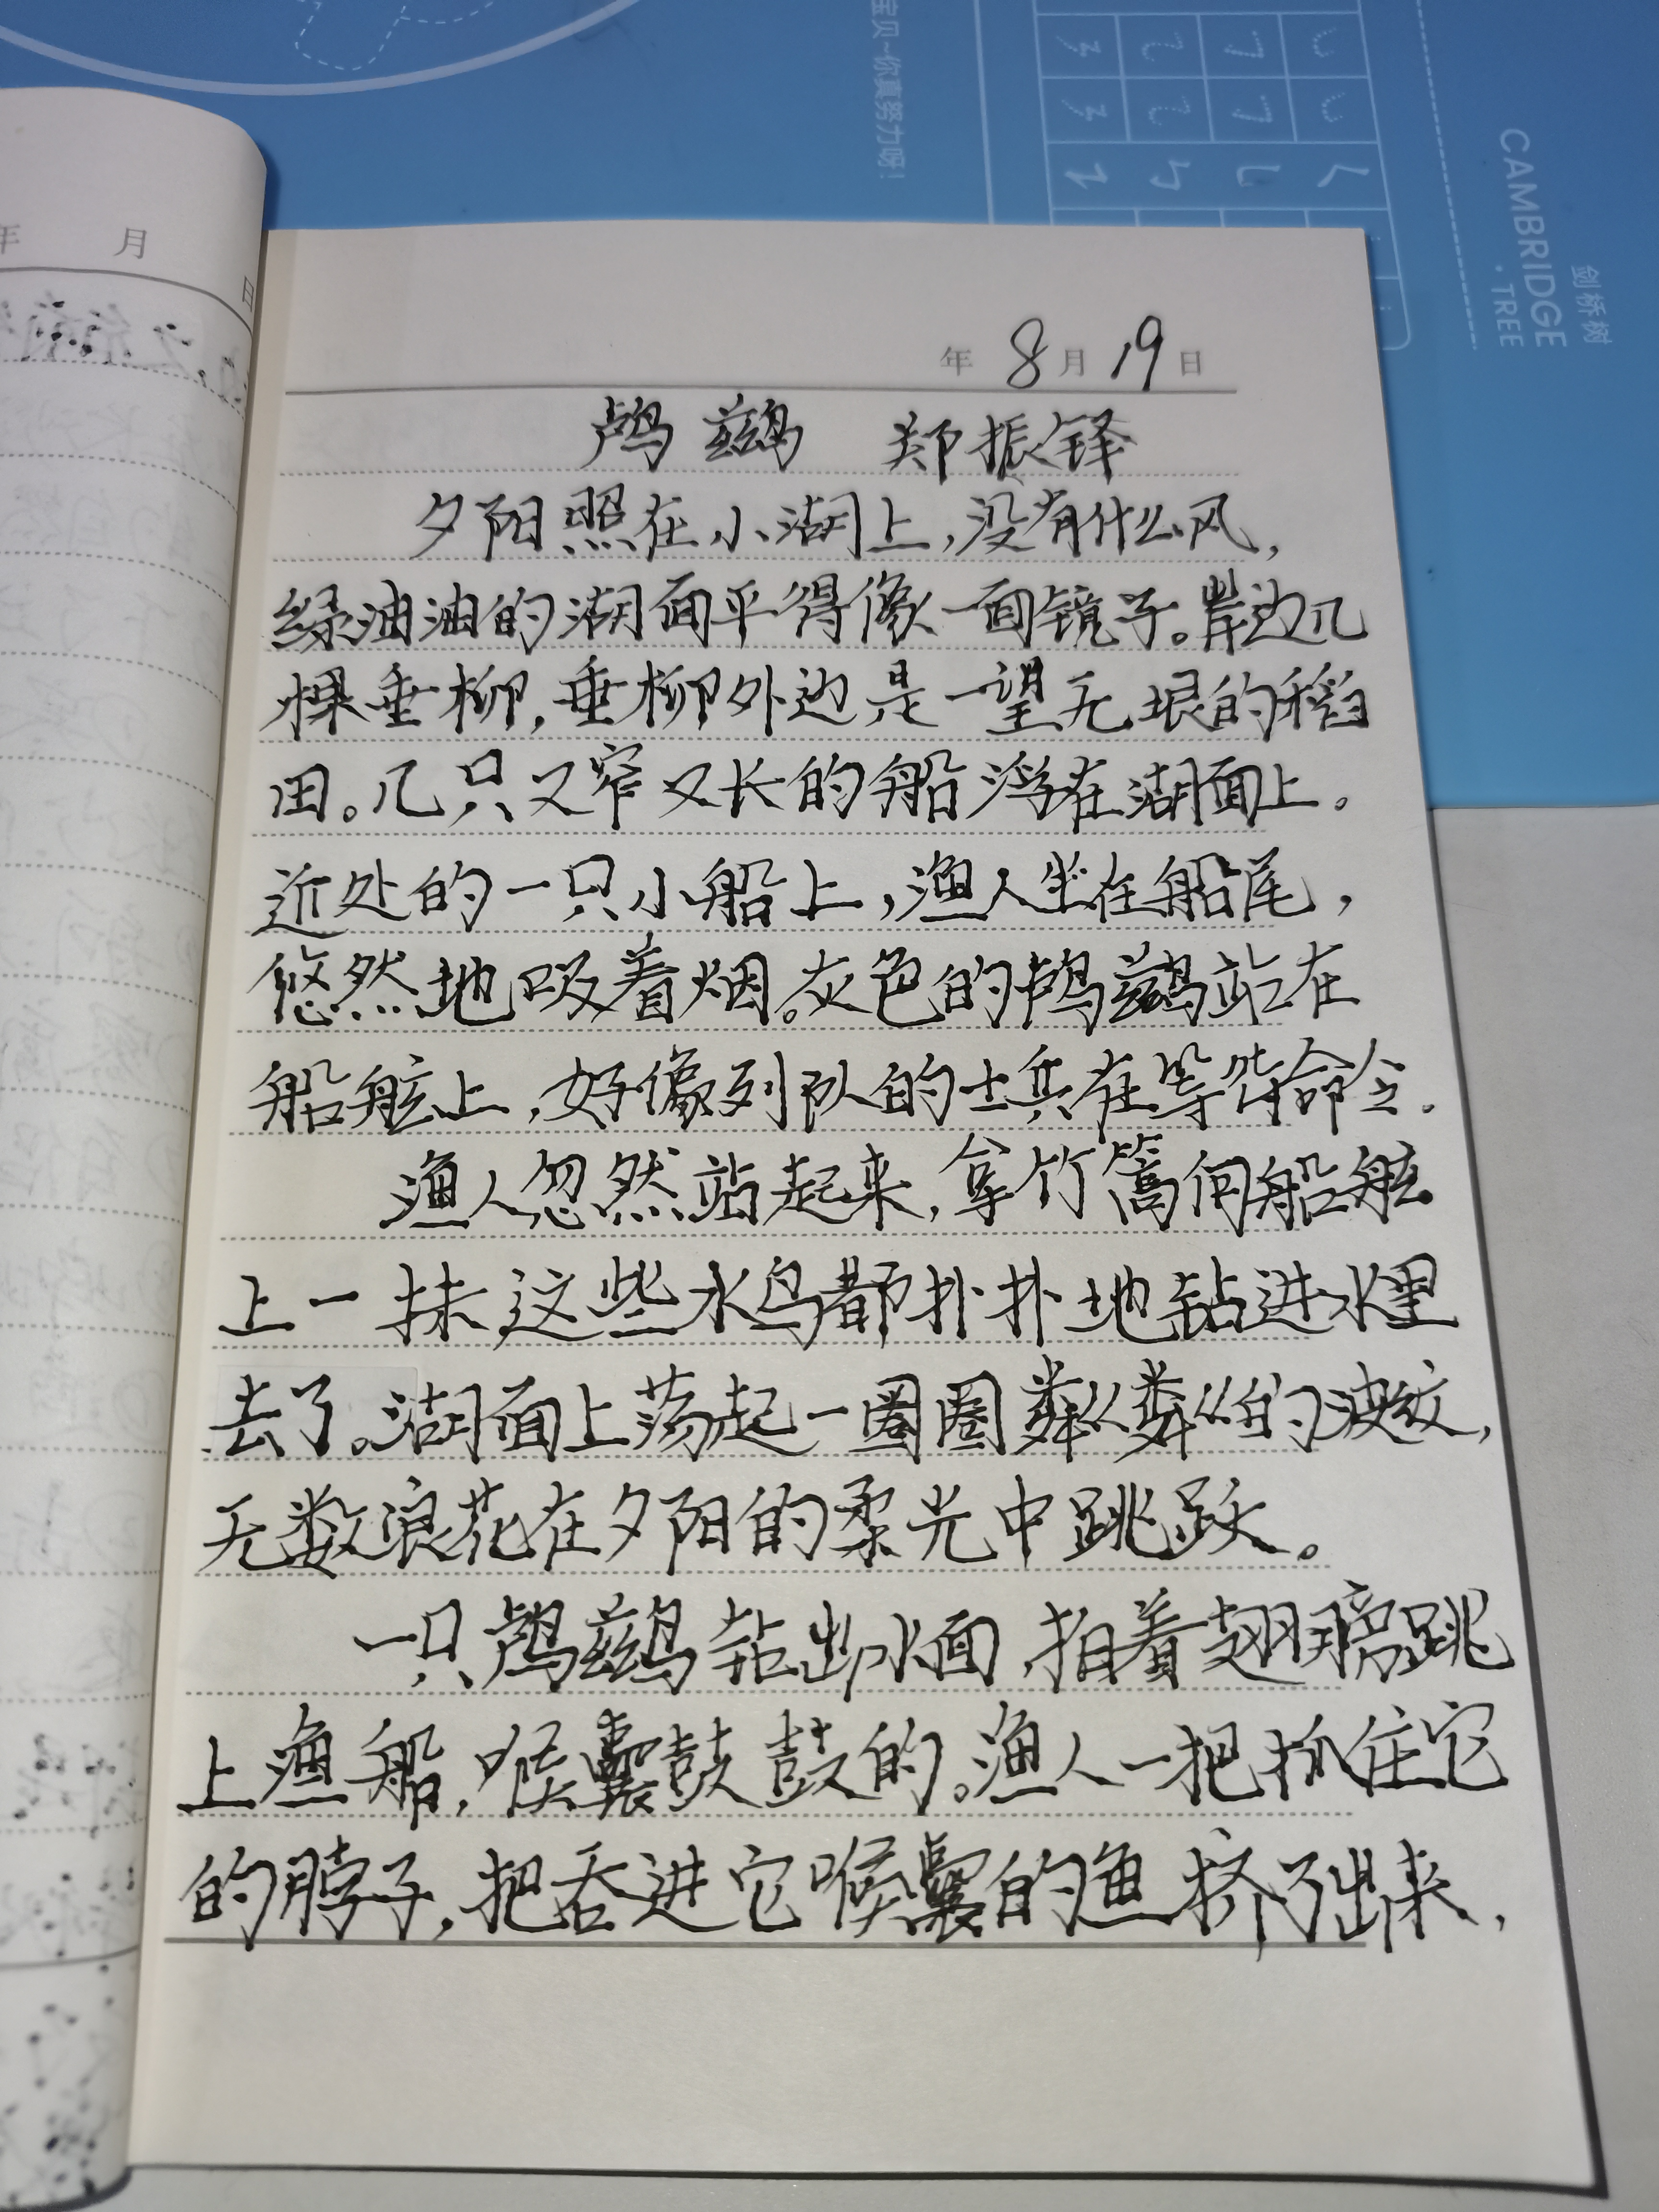 宝贝~你真努力呀!
CAMBRIDGE
.TREE
剑桥树
年 月
日
年 8月19日
鸬鹚 郑振铎
夕阳照在小湖上,没有什么风,
绿油油的湖面平得像一面镜子。岸边几
棵垂柳,垂柳外边是一望无垠的稻
田。几只又窄又长的船浮在湖面上。
近处的一只小船上,渔人坐在船尾,
悠然地吸着烟。灰色的鸬鹚站在
船舷上,好像列队的士兵在等待命令.
渔人忽然站起来,拿竹篙向船舷
上一抹,这些水鸟都扑扑地钻进水里
去了。湖面上荡起一圈圈粼粼的波纹,
无数浪花在夕阳的柔光中跳跃。
一只鸬鹚钻出水面,拍着翅膀跳
上渔船,喉囊鼓鼓的。渔人一把抓住它
的脖子,把吞进它喉囊的鱼挤了出来,